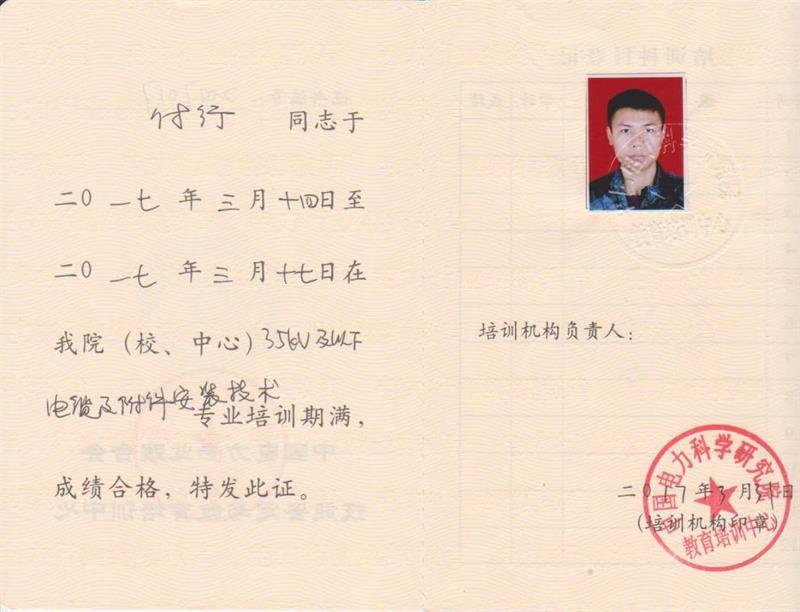 付行 同志于
二〇一七年三月十四日至
二〇一七年三月十七日在
我院（校、中心）35kV及以下
电缆及附件安装技术
专业培训期满，
成绩合格，特发此证。
培训机构负责人：
二〇17年3月 日
（培训机构印章）
中国电力科学研究院
教育培训中心